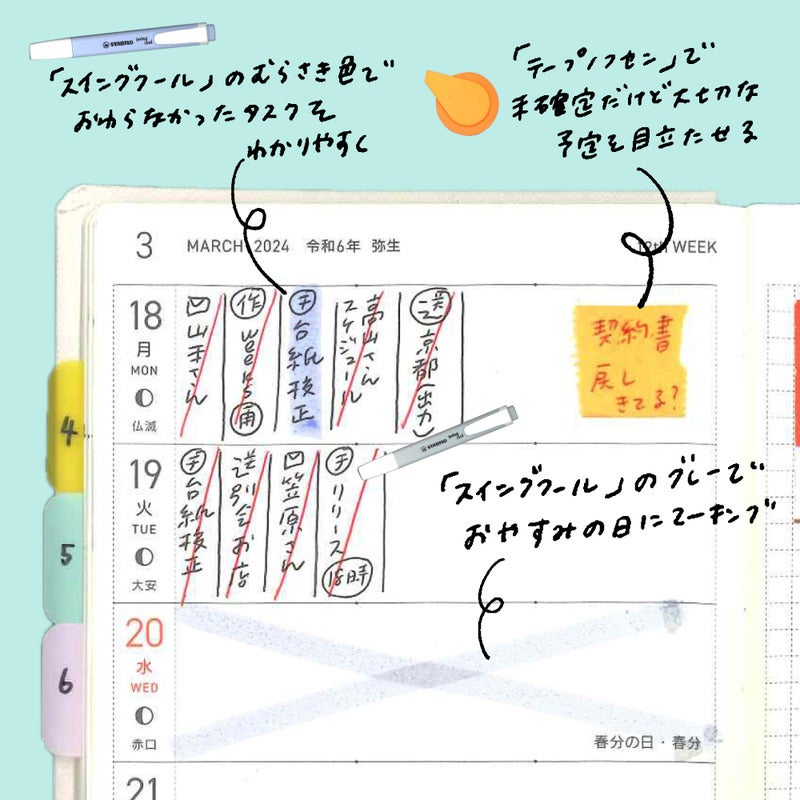 STABILO swing cool
「スイングクール」のむらさき色で
おわらなかったタスクを
わかりやすく
「テープノフセン」で
未確定だけど大切な
予定を目立たせる
3 MARCH 2024 令和6年 弥生
12th WEEK
18
月
MON
仏滅
山本さん
作
手 台紙校正
高山さん
スケジュール
送 京都(出力)
契約書
戻し
きてる?
4
5
6
19
火
TUE
大安
手 台紙校正
送別会お店
笠原さん
手 リリース 18時
STABILO swing cool
「スイングクール」のグレーで
おやすみの日にマーキング
20
水
WED
赤口
春分の日・春分
21